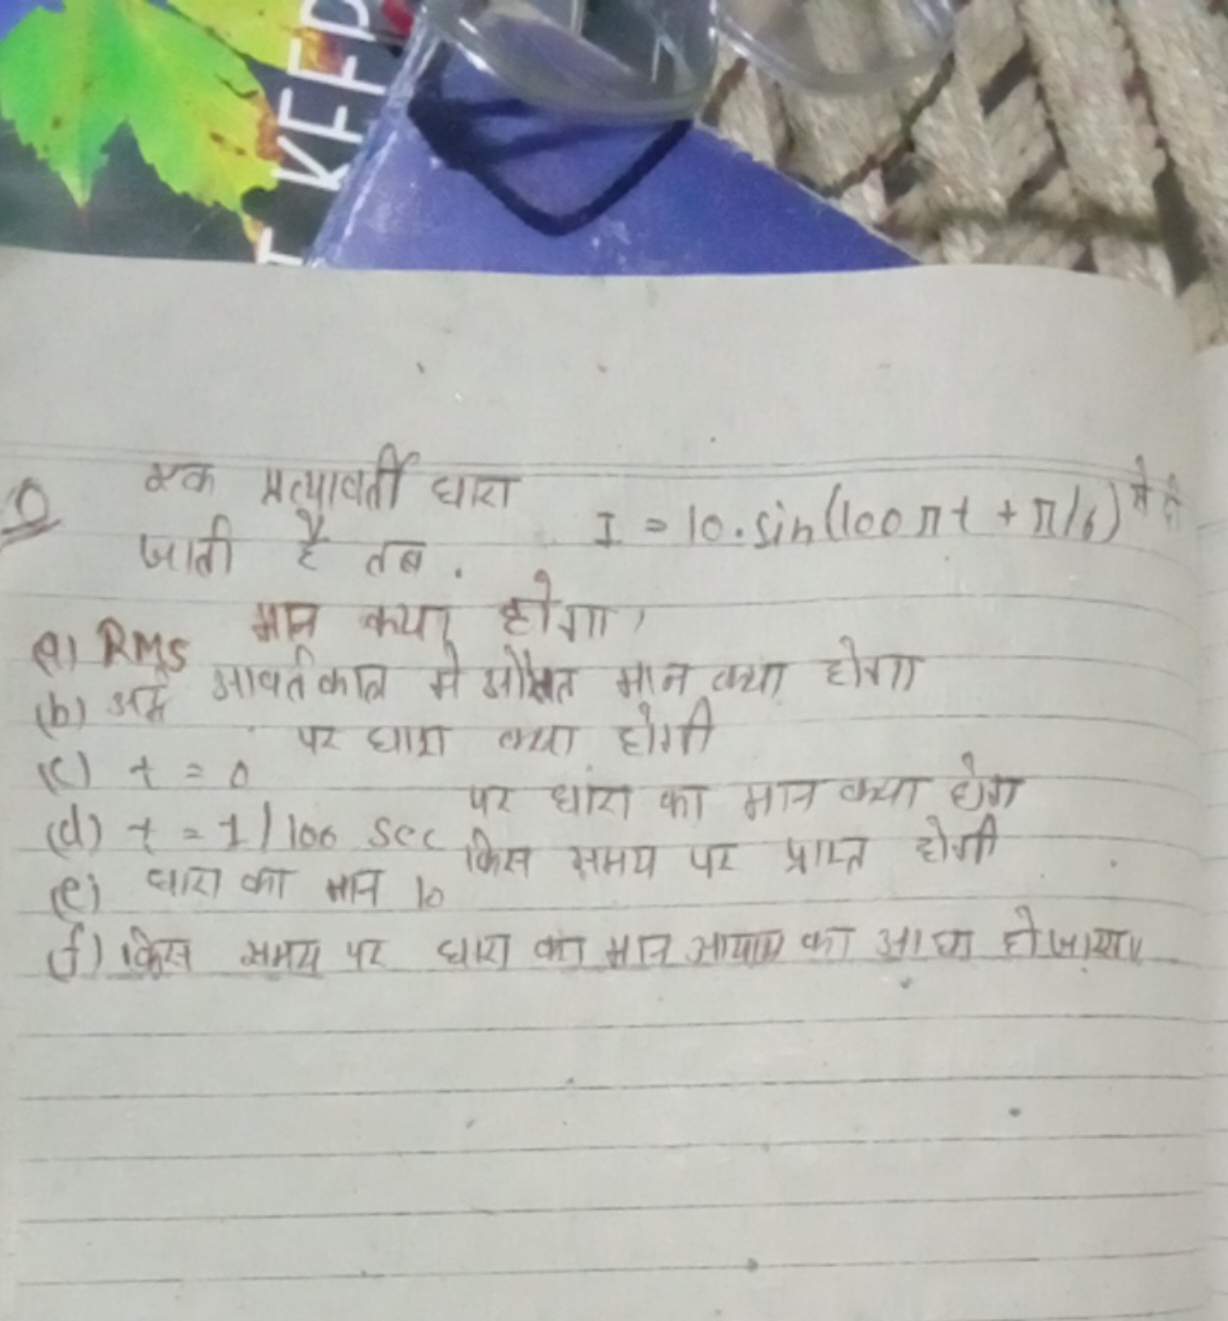 T KEEP
Q एक प्रत्यावर्ती धारा I = 10.sin(100πt + π/6) से दी
जाती है तब.
(a) RMS मान क्या होगा,
(b) अर्द्ध आवर्तकाल मे औसत मान क्या होगा
(c) t = 0 पर धारा क्या होगी
(d) t = 1/100 sec पर धारा का मान क्या होगा
(e) धारा का मान 10 किस समय पर प्राप्त होगी
(f) किस समय पर धारा का मान आयाम का आधा हो जाएगा